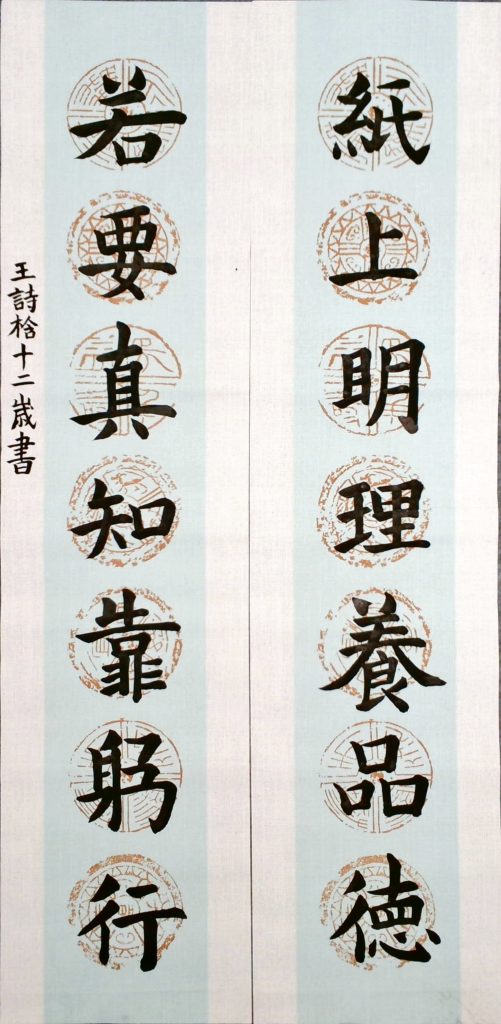 紙上明理養品德
若要真知靠躬行
王詩晗十二歲書